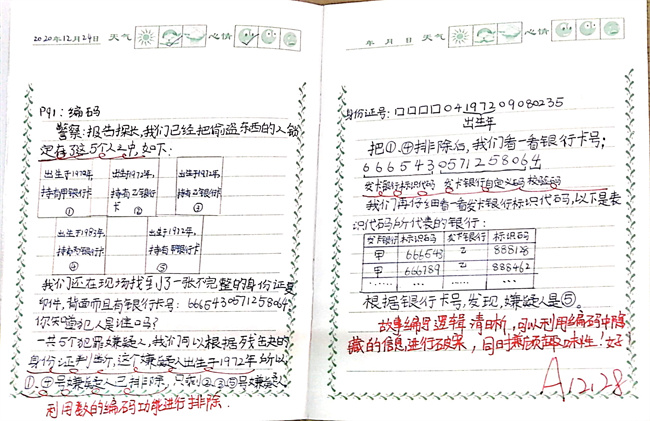 2020年12月24日 天气 心情
P91：编码
警察：报告探长，我们已经把偷盗东西的人锁
定在了这5个人之中，如下：
出生于1972年，
持有甲银行卡
①
出生于1972年，
持有乙银行
卡 ②
出生于1972年，
持有乙银行卡
③
出生于1983年，
持有丙银行卡
④
出生于1972年，
持有甲银行卡
⑤
我们还在现场找到了一张不完整的身份证复
印件，背面而且有银行卡号：6665430571258064，
你知道犯人是谁吗？
一共5个犯罪嫌疑人，我们可以根据残缺的
身份证判断，这个嫌疑人出生于1972年所以
①、④号嫌疑人已排除，只剩②③⑤号嫌疑人
利用数的编码功能进行排除.
年 月 日 天气 心情
身份证号：口口口口04197209080235
出生年
把①、④排除后，我们看一看银行卡号；
6665430571258064
发卡银行标识代码 发卡银行自定义码 校验码
我们再仔细看一看发卡银行标识代码，以下是表
识代码所代表的银行：
发卡银行 标识代码 发卡银行 标识码
甲 666543 乙 888128
甲 666789 乙 888462
…… …… …… ……
根据银行卡号，发现，嫌疑人是⑤。
故事编写逻辑清晰，可以利用编码中隐
藏的信息进行破案，同时兼顾趣味性！
A 12.28